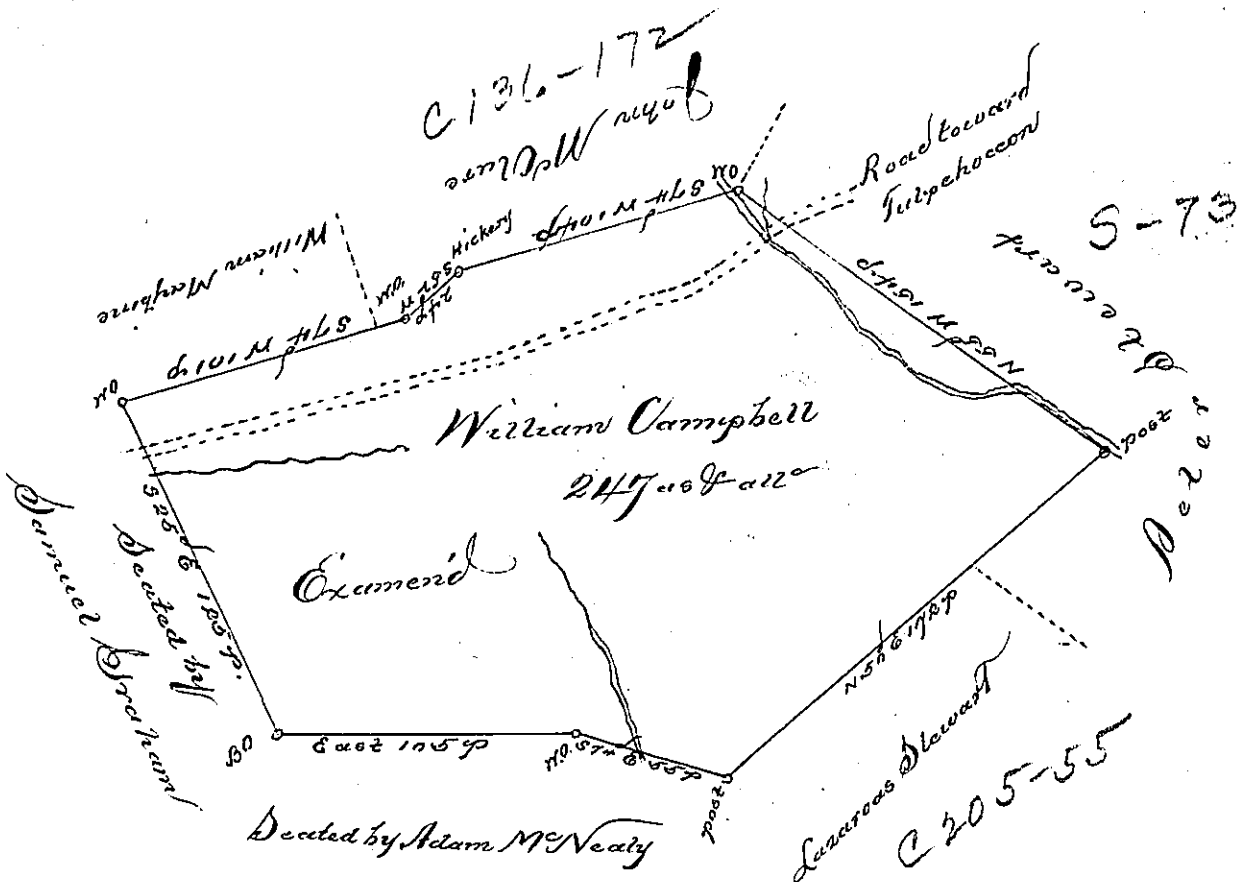 C136-172
John McClure
Road toward
Tulpehoccon
S-73
Peter Stewart
William Maybine
WO
S74 W 104 p
Hickery
S52 W
24 p
WO
S74 W 101 p
WO
N55 W 154 p
post
William Campbell
247 as & all
Examend
S25 E 125 p.
Seated by
Samuel Graham
BO
East 105 p
W.O.
S74 E 55 p
post
N50 E 172 p
Seated by Adam McNealy
Lazaroas Stewart
C205-55